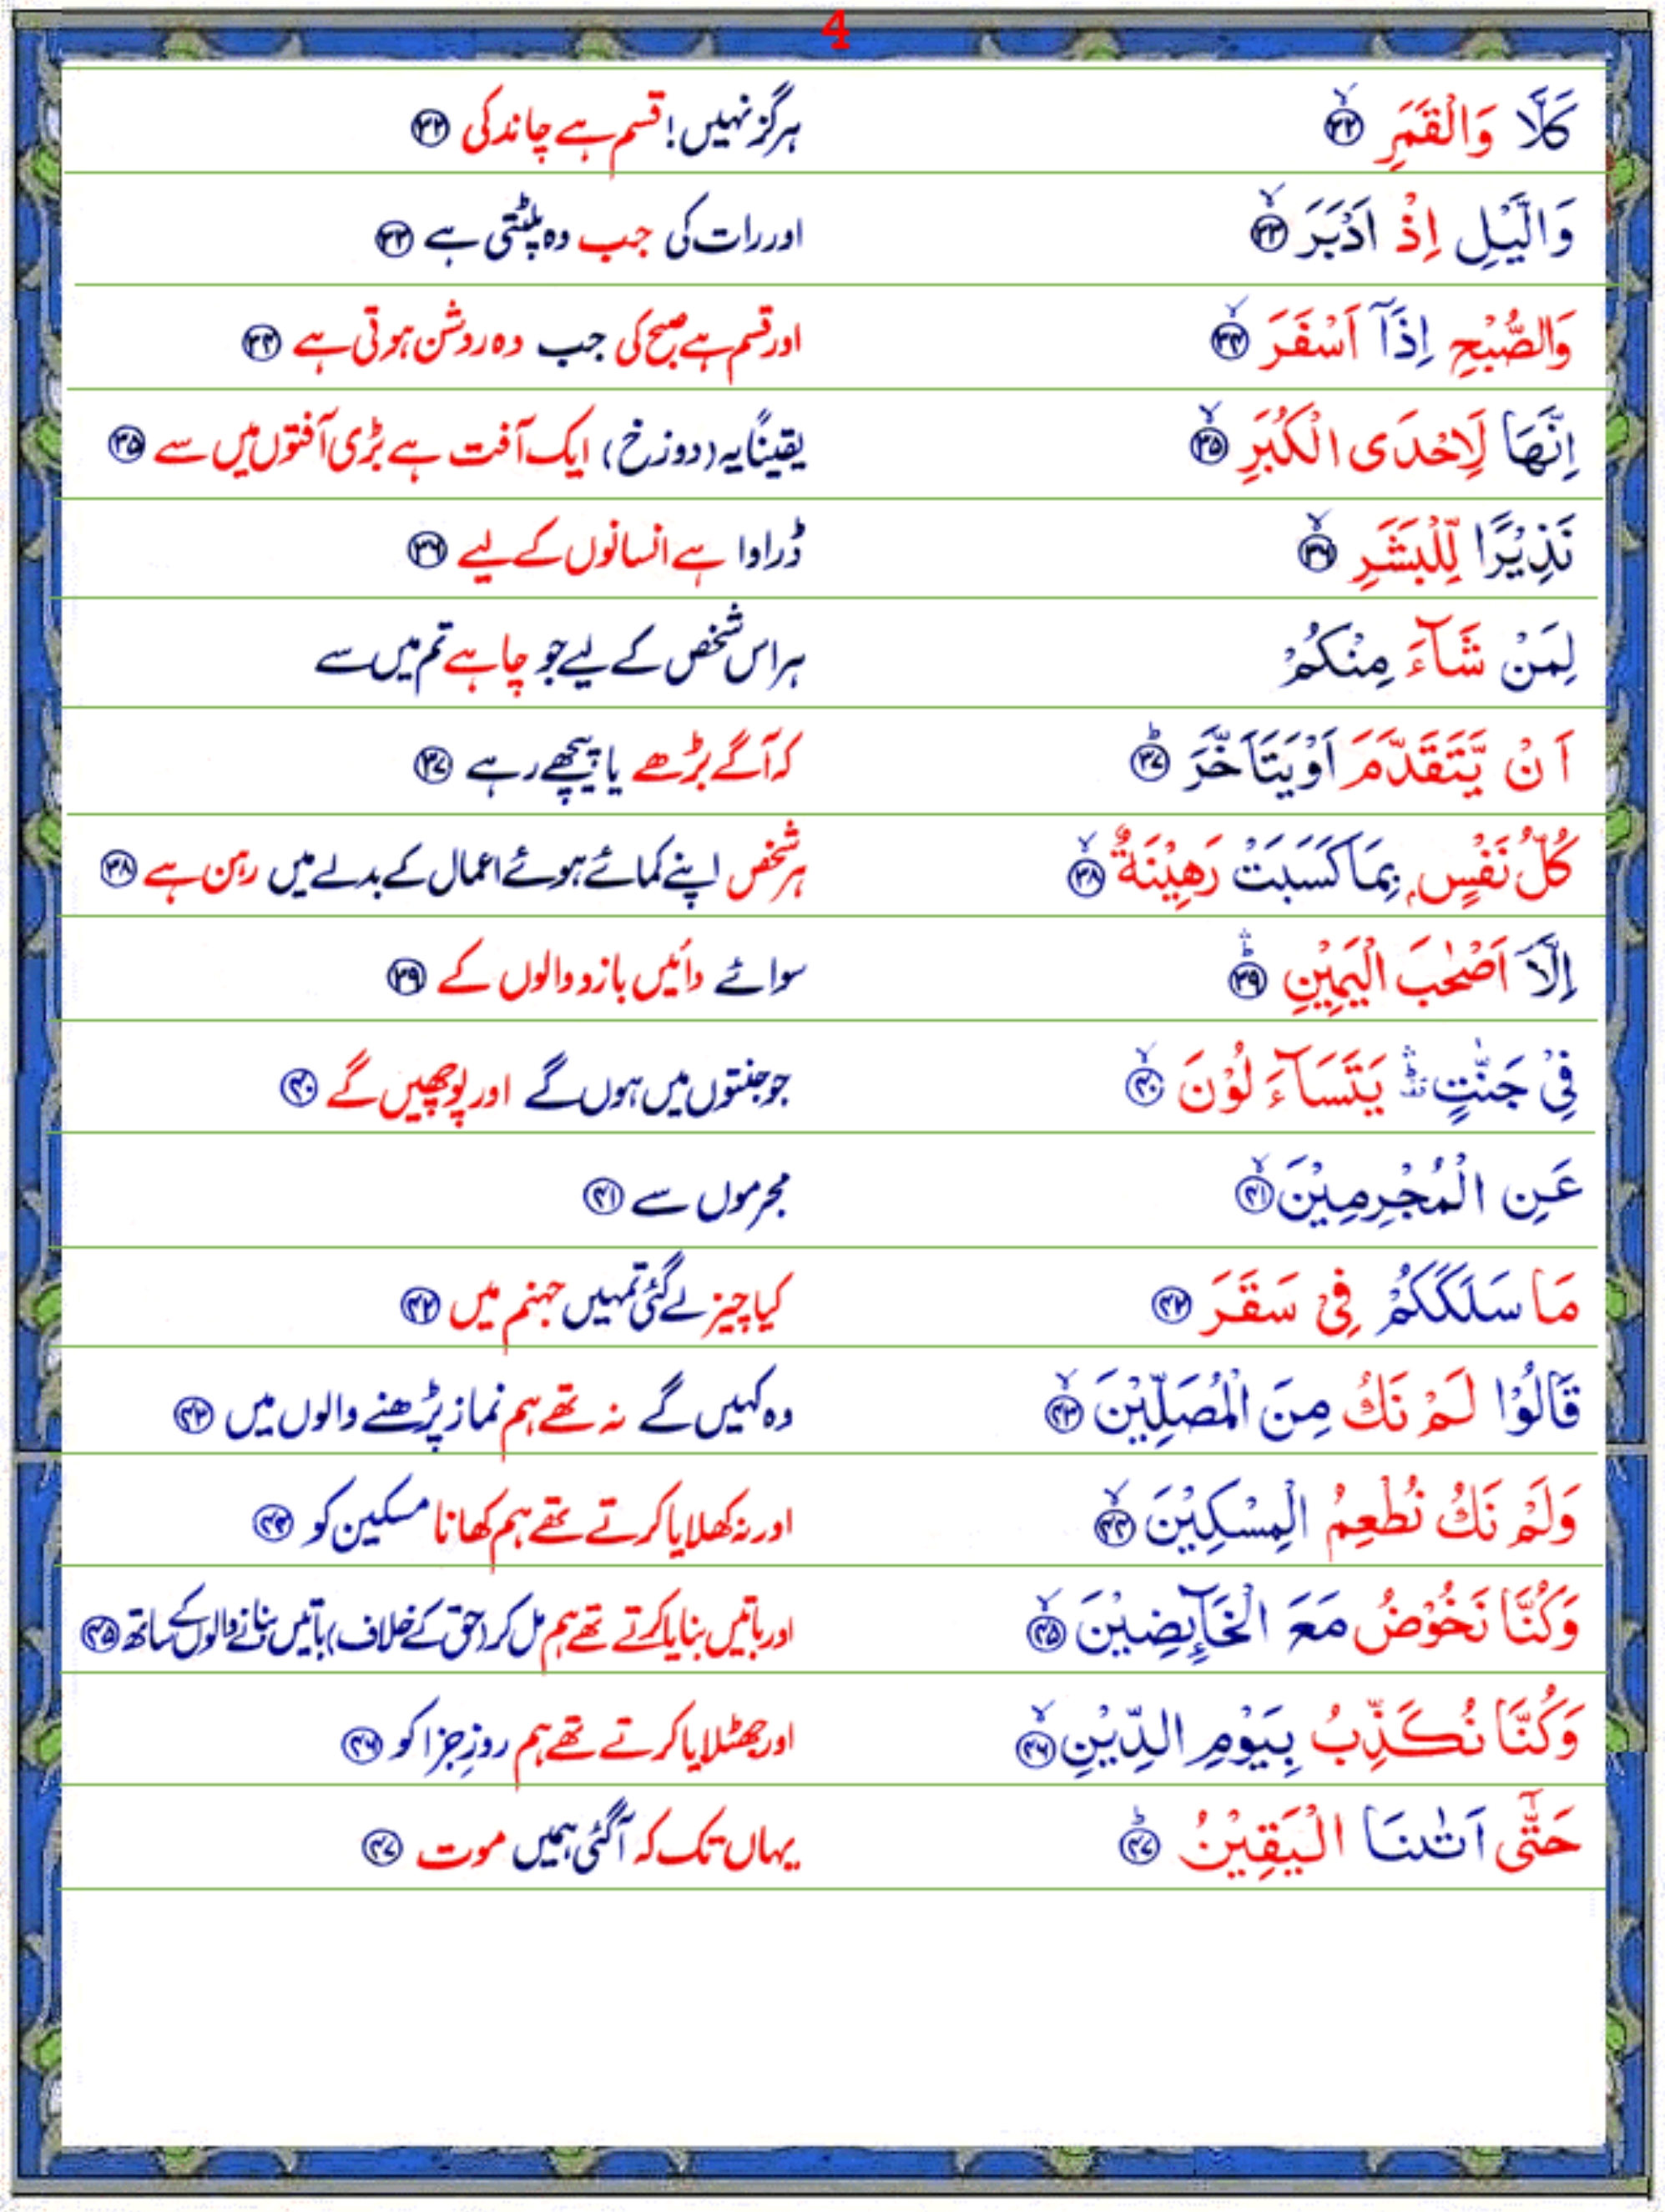 4
كَلَّا وَالْقَمَرِ ۙ﴿۳۲﴾ ہرگز نہیں! قسم ہے چاند کی ﴿۳۲﴾
وَالَّيْلِ اِذْ اَدْبَرَ ۙ﴿۳۳﴾ اور رات کی جب وہ پلٹتی ہے ﴿۳۳﴾
وَالصُّبْحِ اِذَآ اَسْفَرَ ۙ﴿۳۴﴾ اور قسم ہے صبح کی جب وہ روشن ہوتی ہے ﴿۳۴﴾
اِنَّهَا لَاِحْدَى الْكُبَرِ ۙ﴿۳۵﴾ یقیناً یہ (دوزخ) ایک آفت ہے بڑی آفتوں میں سے ﴿۳۵﴾
نَذِيْرًا لِّلْبَشَرِ ۙ﴿۳۶﴾ ڈراوا ہے انسانوں کے لیے ﴿۳۶﴾
لِمَنْ شَآءَ مِنْكُمْ ہر اس شخص کے لیے جو چاہے تم میں سے
اَنْ يَّتَقَدَّمَ اَوْ يَتَاَخَّرَ ؕ﴿۳۷﴾ کہ آگے بڑھے یا پیچھے رہے ﴿۳۷﴾
كُلُّ نَفْسٍۭ بِمَا كَسَبَتْ رَهِيْنَةٌ ۙ﴿۳۸﴾ ہر شخص اپنے کمائے ہوئے اعمال کے بدلے میں رہن ہے ﴿۳۸﴾
اِلَّآ اَصْحٰبَ الْيَمِيْنِ ؕۛ﴿۳۹﴾ سوائے دائیں بازو والوں کے ﴿۳۹﴾
فِيْ جَنّٰتٍ ۛؕ يَتَسَآءَلُوْنَ ۙ﴿۴۰﴾ جو جنتوں میں ہوں گے اور پوچھیں گے ﴿۴۰﴾
عَنِ الْمُجْرِمِيْنَ ۙ﴿۴۱﴾ مجرموں سے ﴿۴۱﴾
مَا سَلَكَكُمْ فِيْ سَقَرَ ﴿۴۲﴾ کیا چیز لے گئی تمہیں جہنم میں ﴿۴۲﴾
قَالُوْا لَمْ نَكُ مِنَ الْمُصَلِّيْنَ ۙ﴿۴۳﴾ وہ کہیں گے نہ تھے ہم نماز پڑھنے والوں میں ﴿۴۳﴾
وَلَمْ نَكُ نُطْعِمُ الْمِسْكِيْنَ ۙ﴿۴۴﴾ اور نہ کھلایا کرتے تھے ہم کھانا مسکین کو ﴿۴۴﴾
وَكُنَّا نَخُوْضُ مَعَ الْخَآىِٕضِيْنَ ۙ﴿۴۵﴾ اور باتیں بنایا کرتے تھے ہم مل کر (حق کے خلاف) باتیں بنانے والوں کے ساتھ ﴿۴۵﴾
وَكُنَّا نُكَذِّبُ بِيَوْمِ الدِّيْنِ ۙ﴿۴۶﴾ اور جھٹلایا کرتے تھے ہم روزِ جزا کو ﴿۴۶﴾
حَتّٰٓى اَتٰىنَا الْيَقِيْنُ ؕ﴿۴۷﴾ یہاں تک کہ آگئی ہمیں موت ﴿۴۷﴾